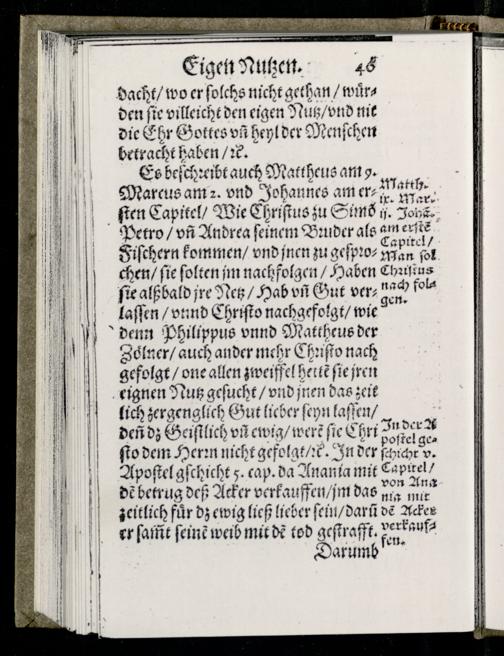 Eigen Nutzen. 46
dacht/ wo er solchs nicht gethan/ wür-
den sie villeicht den eigen Nutz/ vnd nit
die Ehr Gottes vñ heyl der Menschen
betracht haben/ ꝛc.
Es beschreibt auch Mattheus am 9.
Marcus am 2. vnd Johannes am er-
sten Capitel/ Wie Christus zu Simō
Petro/ vñ Andrea seinem Bruder als
Fischern kommen/ vnd jnen zu gespro-
chen/ sie solten jm nachfolgen/ Haben
sie alßbald jre Netz/ Hab vñ Gut ver-
lassen/ vnnd Christo nachgefolgt/ wie
denn Philippus vnnd Mattheus der
Zölner/ auch ander mehr Christo nach
gefolgt/ one allen zweiffel hettē sie jren
eignen Nutz gesucht/ vnd jnen das zeit
lich zergenglich Gut lieber seyn lassen/
deñ dz Geistlich vñ ewig/ werē sie Chri
sto dem Herrn nicht gefolgt/ ꝛc. In der
Apostel gschicht 5. cap. da Anania mit
dē betrug deß Acker verkauffen/ jm das
zeitlich für dz ewig ließ lieber sein/ darū
er sam̃t seinē weib mit dē tod gestrafft.
Darumb
Matth.
ix. Mar.
ij. Johā.
am erstē
Capitel/
Man sol
Christus
nach fol-
gen.
In der A
postel ge-
schicht v.
Capitel/
von Ana
nia mit
dē Acker
verkauf-
fen.